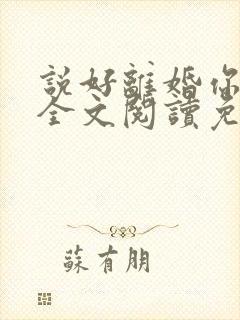 說好離婚你
全文閱讀免
蘇有朋